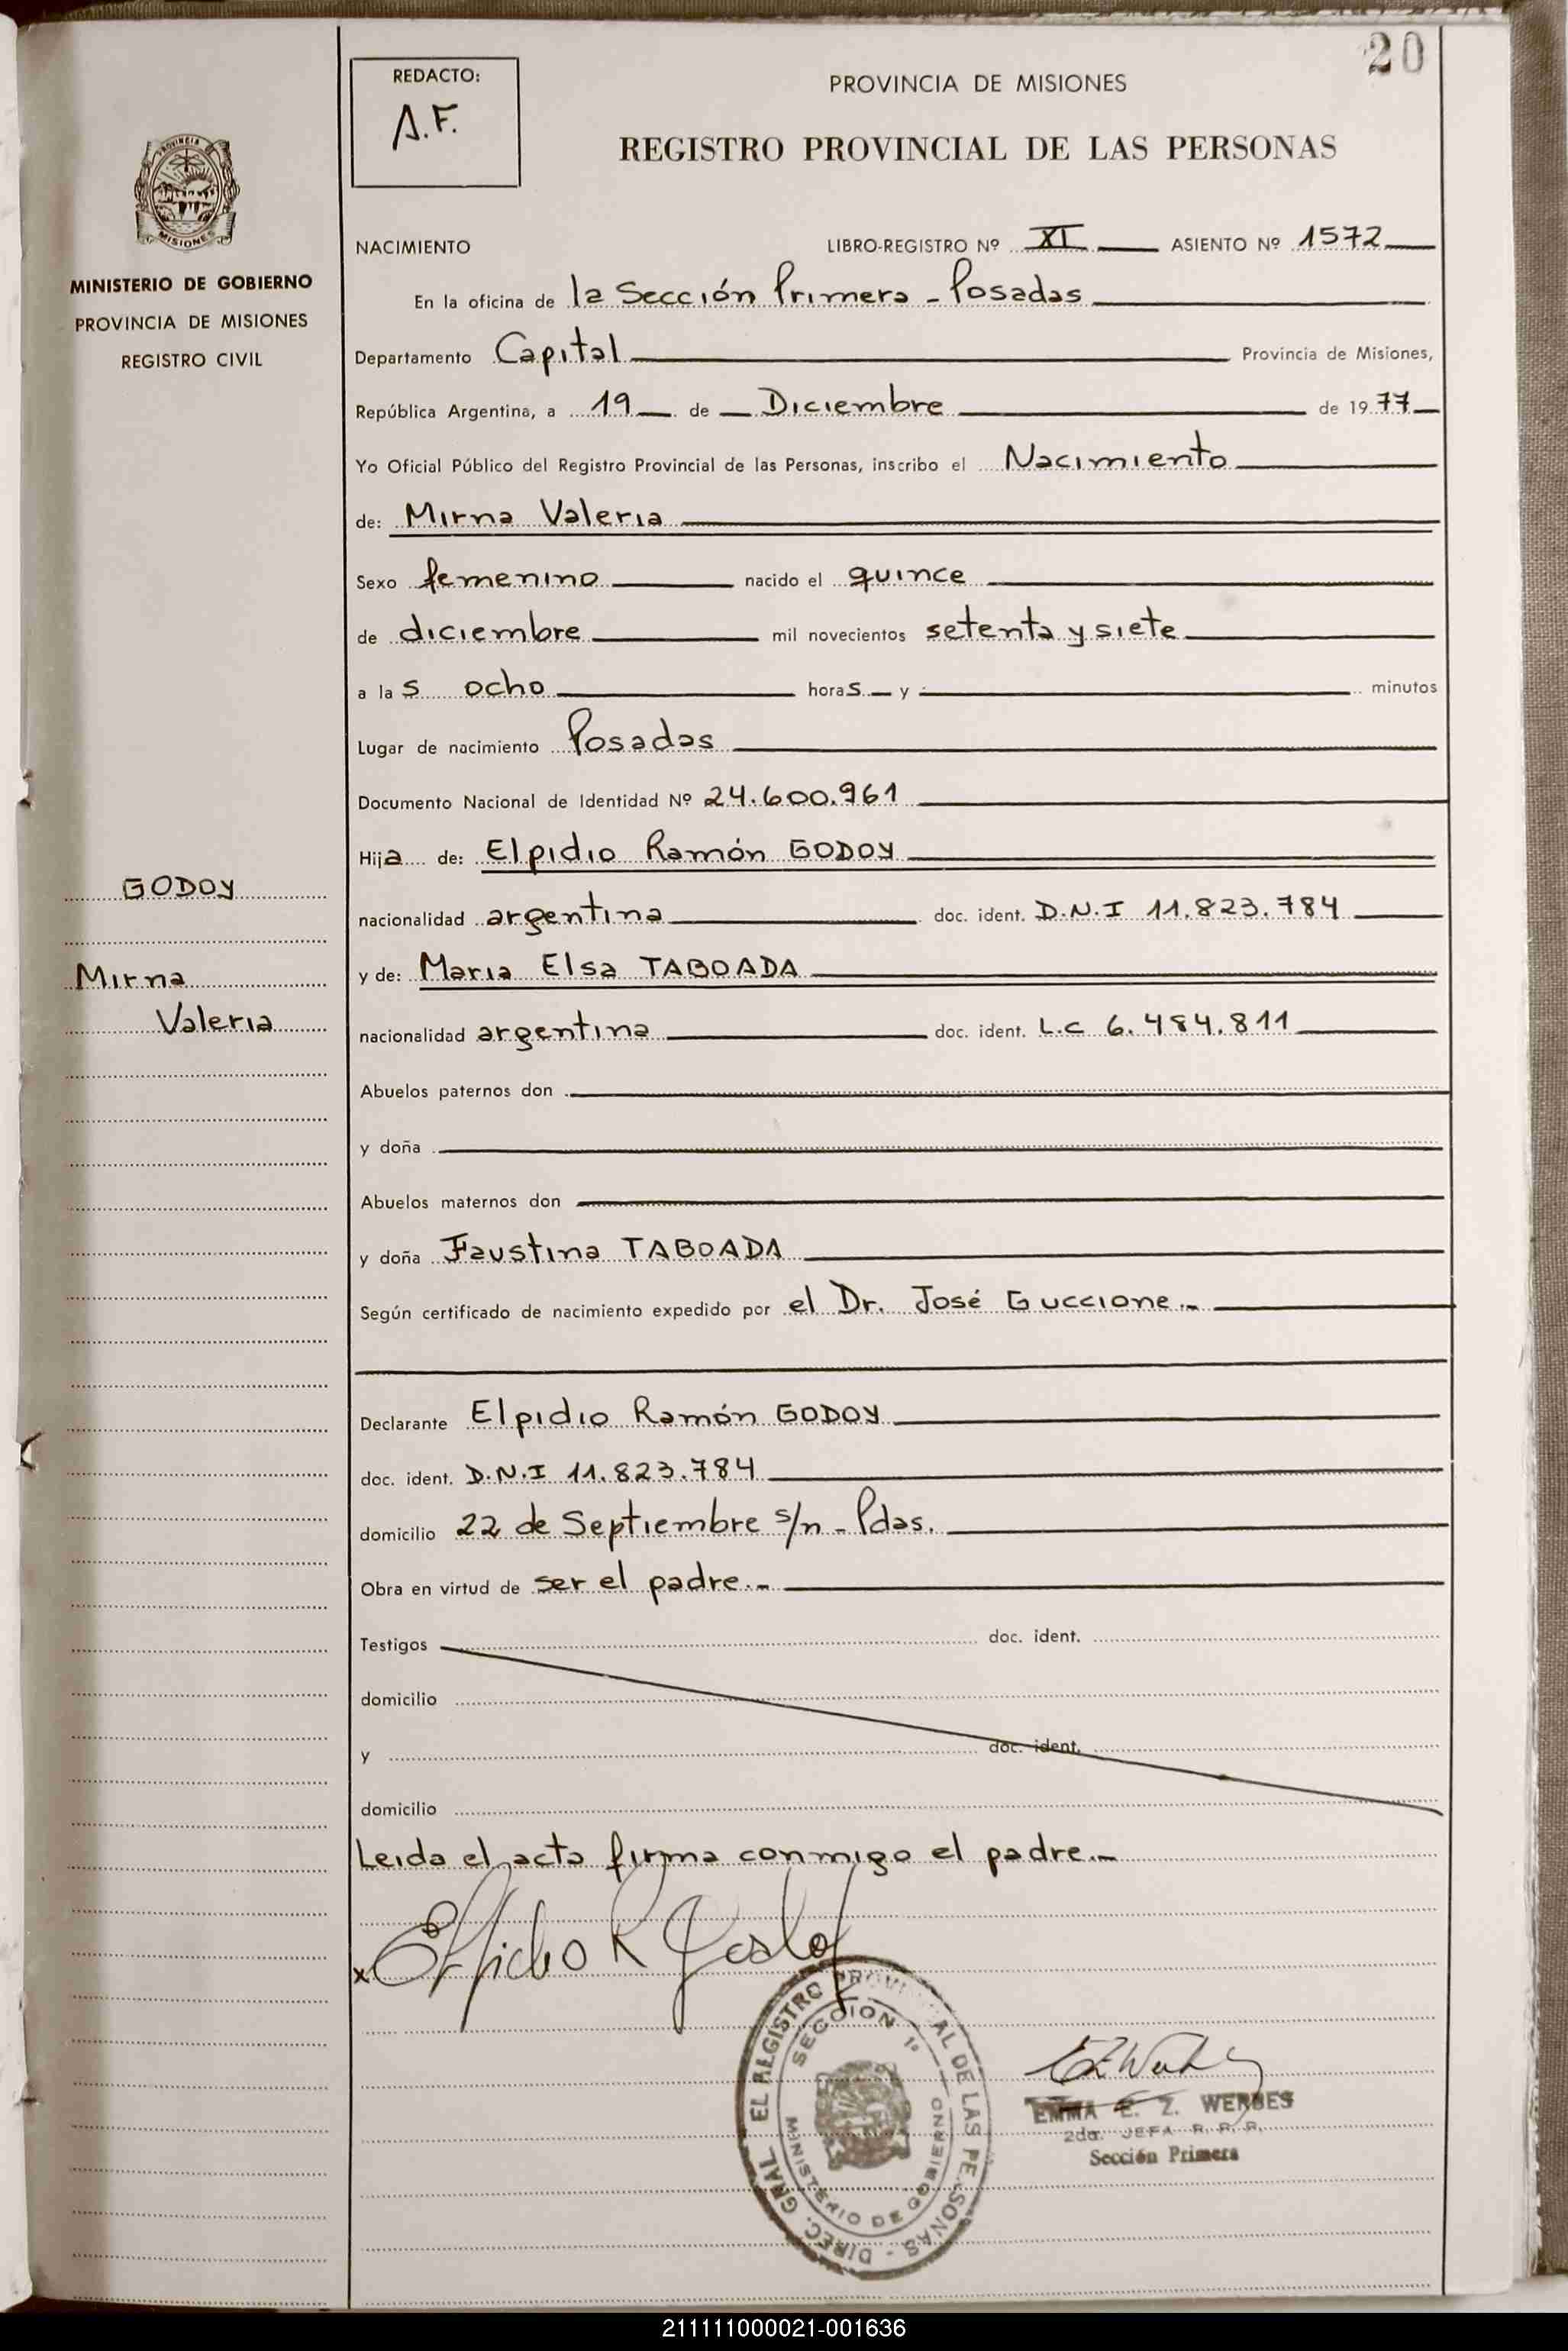 20
REDACTO:
A.F.
PROVINCIA DE MISIONES
REGISTRO PROVINCIAL DE LAS PERSONAS
PROVINCIA
MISIONES
MINISTERIO DE GOBIERNO
PROVINCIA DE MISIONES
REGISTRO CIVIL
NACIMIENTO LIBRO-REGISTRO Nº XI ASIENTO Nº 1572
En la oficina de la Sección Primera - Posadas
Departamento Capital Provincia de Misiones,
República Argentina, a 19 de Diciembre de 1977
Yo Oficial Público del Registro Provincial de las Personas, inscribo el Nacimiento
de: Mirna Valeria
Sexo femenino nacido el quince
de diciembre mil novecientos setenta y siete
a las ocho horas y minutos
Lugar de nacimiento Posadas
Documento Nacional de Identidad Nº 24.600.961
Hija de: Elpidio Ramón GODOY
GODOY
nacionalidad argentina doc. ident. D.N.I 11.823.784
y de: Maria Elsa TABOADA
Mirna
Valeria
nacionalidad argentina doc. ident. L.C 6.484.811
Abuelos paternos don
y doña
Abuelos maternos don
y doña Faustina TABOADA
Según certificado de nacimiento expedido por el Dr. José Guccione.-
Declarante Elpidio Ramón GODOY
doc. ident. D.N.I 11.823.784
domicilio 22 de Septiembre s/n - Pdas.
Obra en virtud de ser el padre.-
Testigos doc. ident.
domicilio
y doc. ident.
domicilio
Leida el acta firma conmigo el padre.-
x Elpidio R Godoy
DIREC. GRAL. EL REGISTRO PROVINCIAL DE LAS PERSONAS -
SECCION 1º
MINISTERIO DE GOBIERNO
EMMA E. Z. WERBES
2da. JEFA R. P. P.
Sección Primera
211111000021-001636